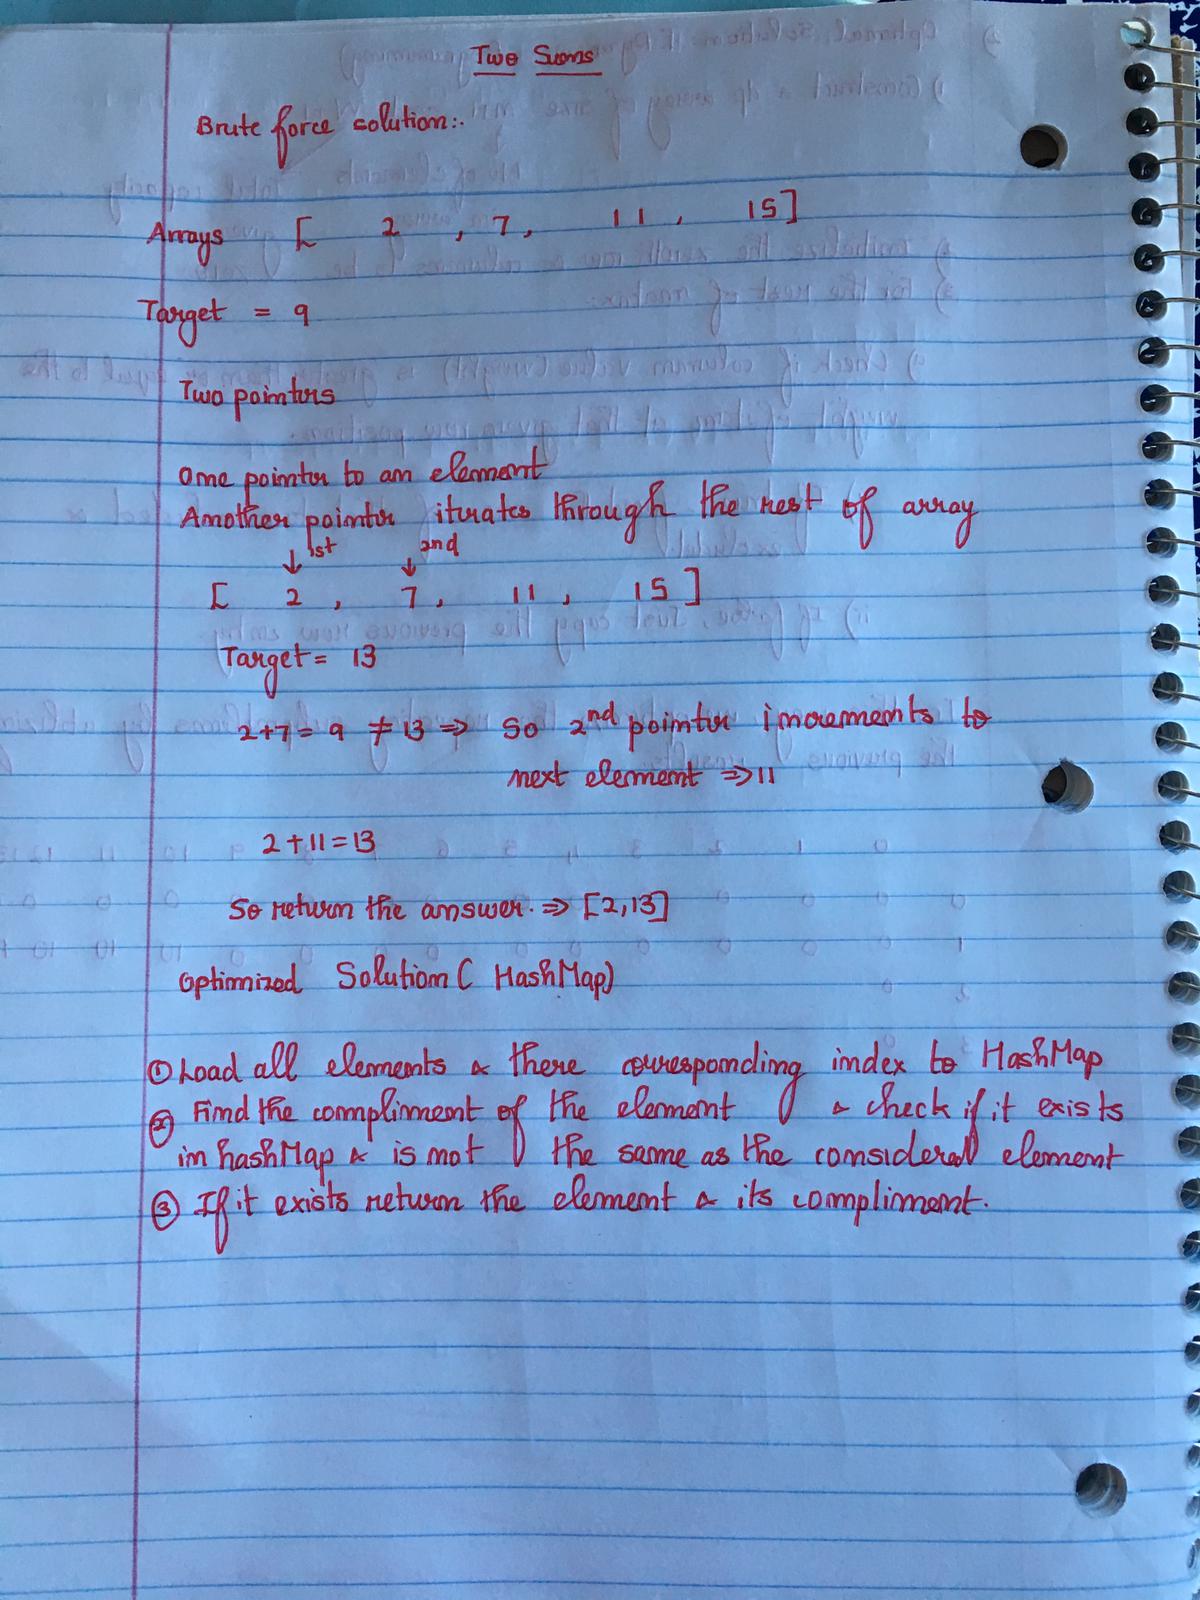 Two Sums
Brute force solution:.
Arrays [ 2 , 7, 11 , 15 ]
Target = 9
Two pointers
One pointer to an element
Another pointer iterates through the rest of array
1st 2nd
[ 2 , 7, 11 , 15 ]
Target = 13
2+7 = 9 ≠ 13 ⇒ So 2nd pointer increments to
next element ⇒ 11
2 + 11 = 13
So return the answer. ⇒ [2,13]
Optimized Solution ( HashMap)
① Load all elements & there corresponding index to HashMap
② Find the compliment of the element & check if it exists
in hashMap & is not the same as the considered element
③ If it exists return the element & its compliment.